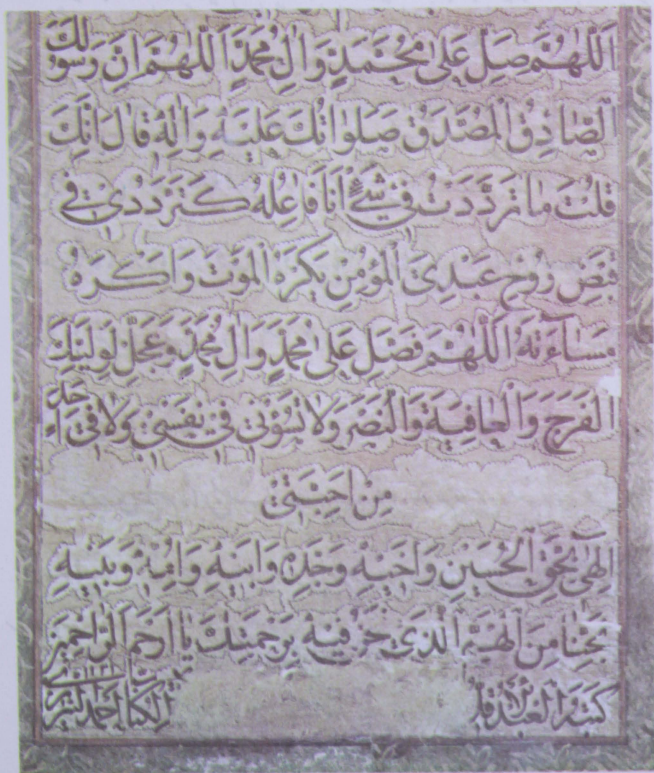 اَللّٰهُمَّ صَلِّ عَلٰى مُحَمَّدٍ وَاٰلِ مُحَمَّدٍ اَللّٰهُمَّ اِنَّ رَسُولَكَ
الصّٰادِقَ الْمُصَدَّقَ صَلَوٰاتُكَ عَلَيْهِ وَاٰلِهِ قٰالَ اِنَّكَ
قُلْتَ مٰا تَرَدَّدْتُ فِي شَيْءٍ اَنَا فٰاعِلُهُ كَتَرَدُّدِي فِي
قَبْضِ رُوحِ عَبْدِيَ الْمُؤْمِنِ يَكْرَهُ الْمَوْتَ وَاَكْرَهُ
مَسٰاءَتَهُ اَللّٰهُمَّ فَصَلِّ عَلٰى مُحَمَّدٍ وَاٰلِ مُحَمَّدٍ وَعَجِّلْ لِوَلِيِّكَ
الْفَرَجَ وَالْعٰافِيَةَ وَالنَّصْرَ وَلٰا تَسُؤْنِي فِي نَفْسِي وَلٰا فِي اَحَدٍ
مِنْ اَحِبَّتِي
اِلٰهِي بِحَقِّ الْحُسَيْنِ وَاَخِيهِ وَجَدِّهِ وَاَبِيهِ وَاُمِّهِ وَبَنِيهِ
نَجِّنٰا مِنَ الْهَمِّ الَّذِي نَحْنُ فِيهِ بِرَحْمَتِكَ يٰا اَرْحَمَ الرّٰاحِمِينَ
كتبه العبد احمد النيريزي